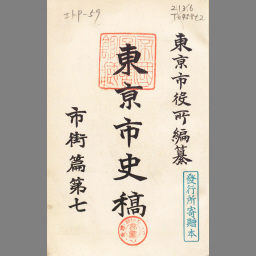 東京市役所編纂
東京市史稿
市街篇第七
發行所寄贈本
エトP-59